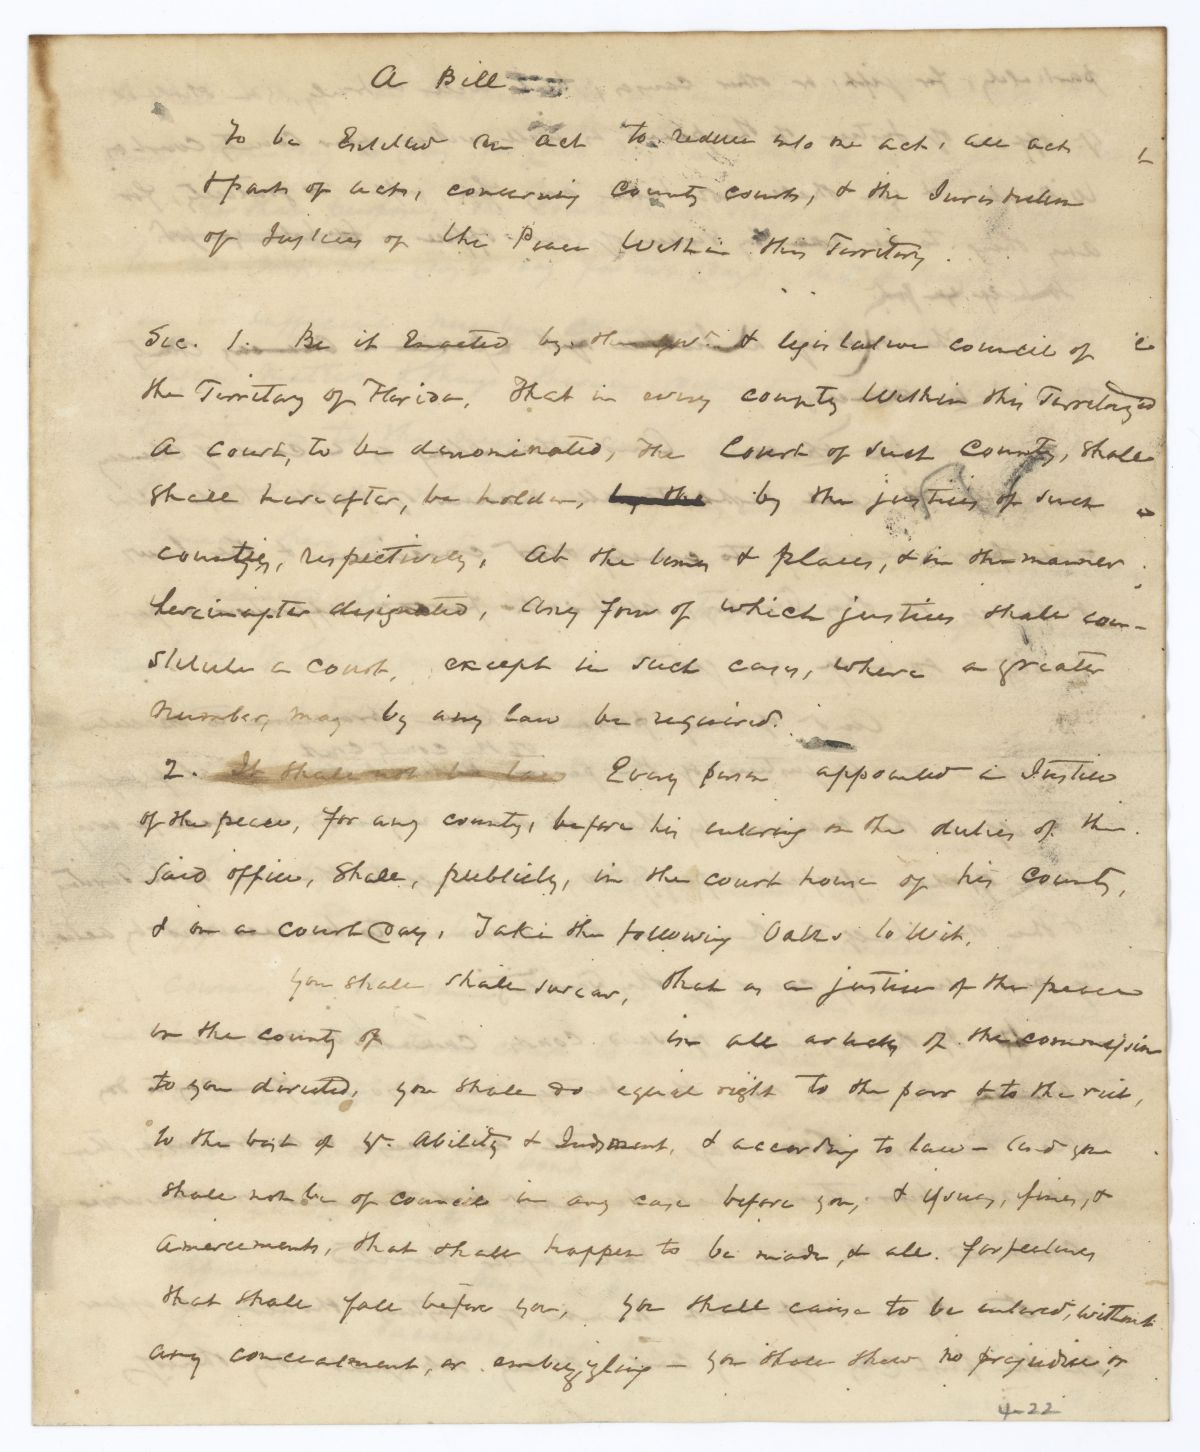 A Bill
To be Entitled An Act to reduce into one act, all acts
& parts of acts, concerning County courts, & the Jurisdiction
of Justices of the Peace Within this Territory.
Sec. 1. Be it Enacted by the Govr. & legislative council of
the Territory of Florida, That in every county Within this Territory
A court, to be denominated, the Court of such County, shall
shall hereafter, be holden, by the by the justices of such
counties, respectively, At the times & places, & in the manner
hereinafter designated, Any four of which justices shall con-
stitute a court, except in such cases, where a greater
number, may by any law be required.
2. It shall not be law Every person appointed a Justice
of the peace, for any county, before his entering on the duties of the
said office, Shall, publicly, in the court house of his County,
& on a court Day, Take the following Oaths to Wit.
you shall shall swear, that as a justice of the peace
in the county of in all articles of the commission
to you directed, you shall do equal right to the poor & to the rich,
to the best of yr. Ability & Judgment, & according to law – And you
shall not be of council in any case before you, & issues, fines, &
Amercements, that shall happen to be made, & all forfeitures
that shall fall before you, you shall cause to be entered, without
any concealment, or embezzling – you shall shew no prejudice or
4-22